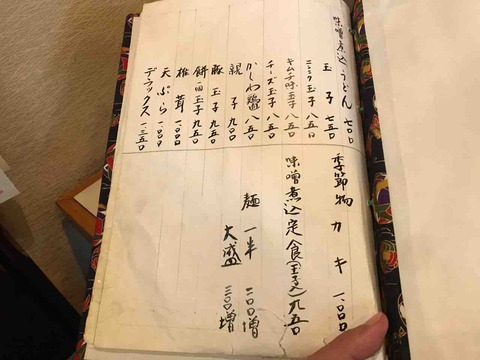 味噌煮込うどん 七〇〇
玉子 七五〇
ニンニク玉子 八五〇
キムチ味玉子 八五〇
チーズ玉子 八五〇
かしわ(鶏) 八五〇
親子 九〇〇
豚玉子 九五〇
餅玉子 九五〇
椎茸 一、〇〇〇
天ぷら 一、〇〇〇
デラックス 一三五〇
季節物カキ 一、〇〇〇
味噌煮込定食(玉子入)九五〇
麺一半 二〇〇増
大盛 三〇〇増